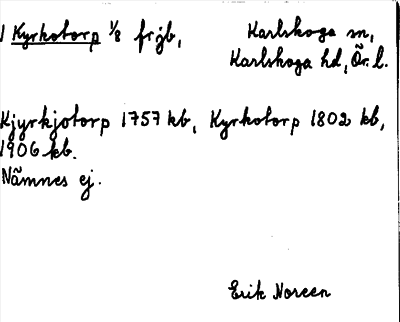 1 Kyrkotorp 1/8 frjb, Karlskoga sn,
Karlskoga hd, Ör. l.
Kjyrkjotorp 1757 kb, Kyrkotorp 1802 kb,
1906 kb.
Nämnes ej.
Erik Noreen